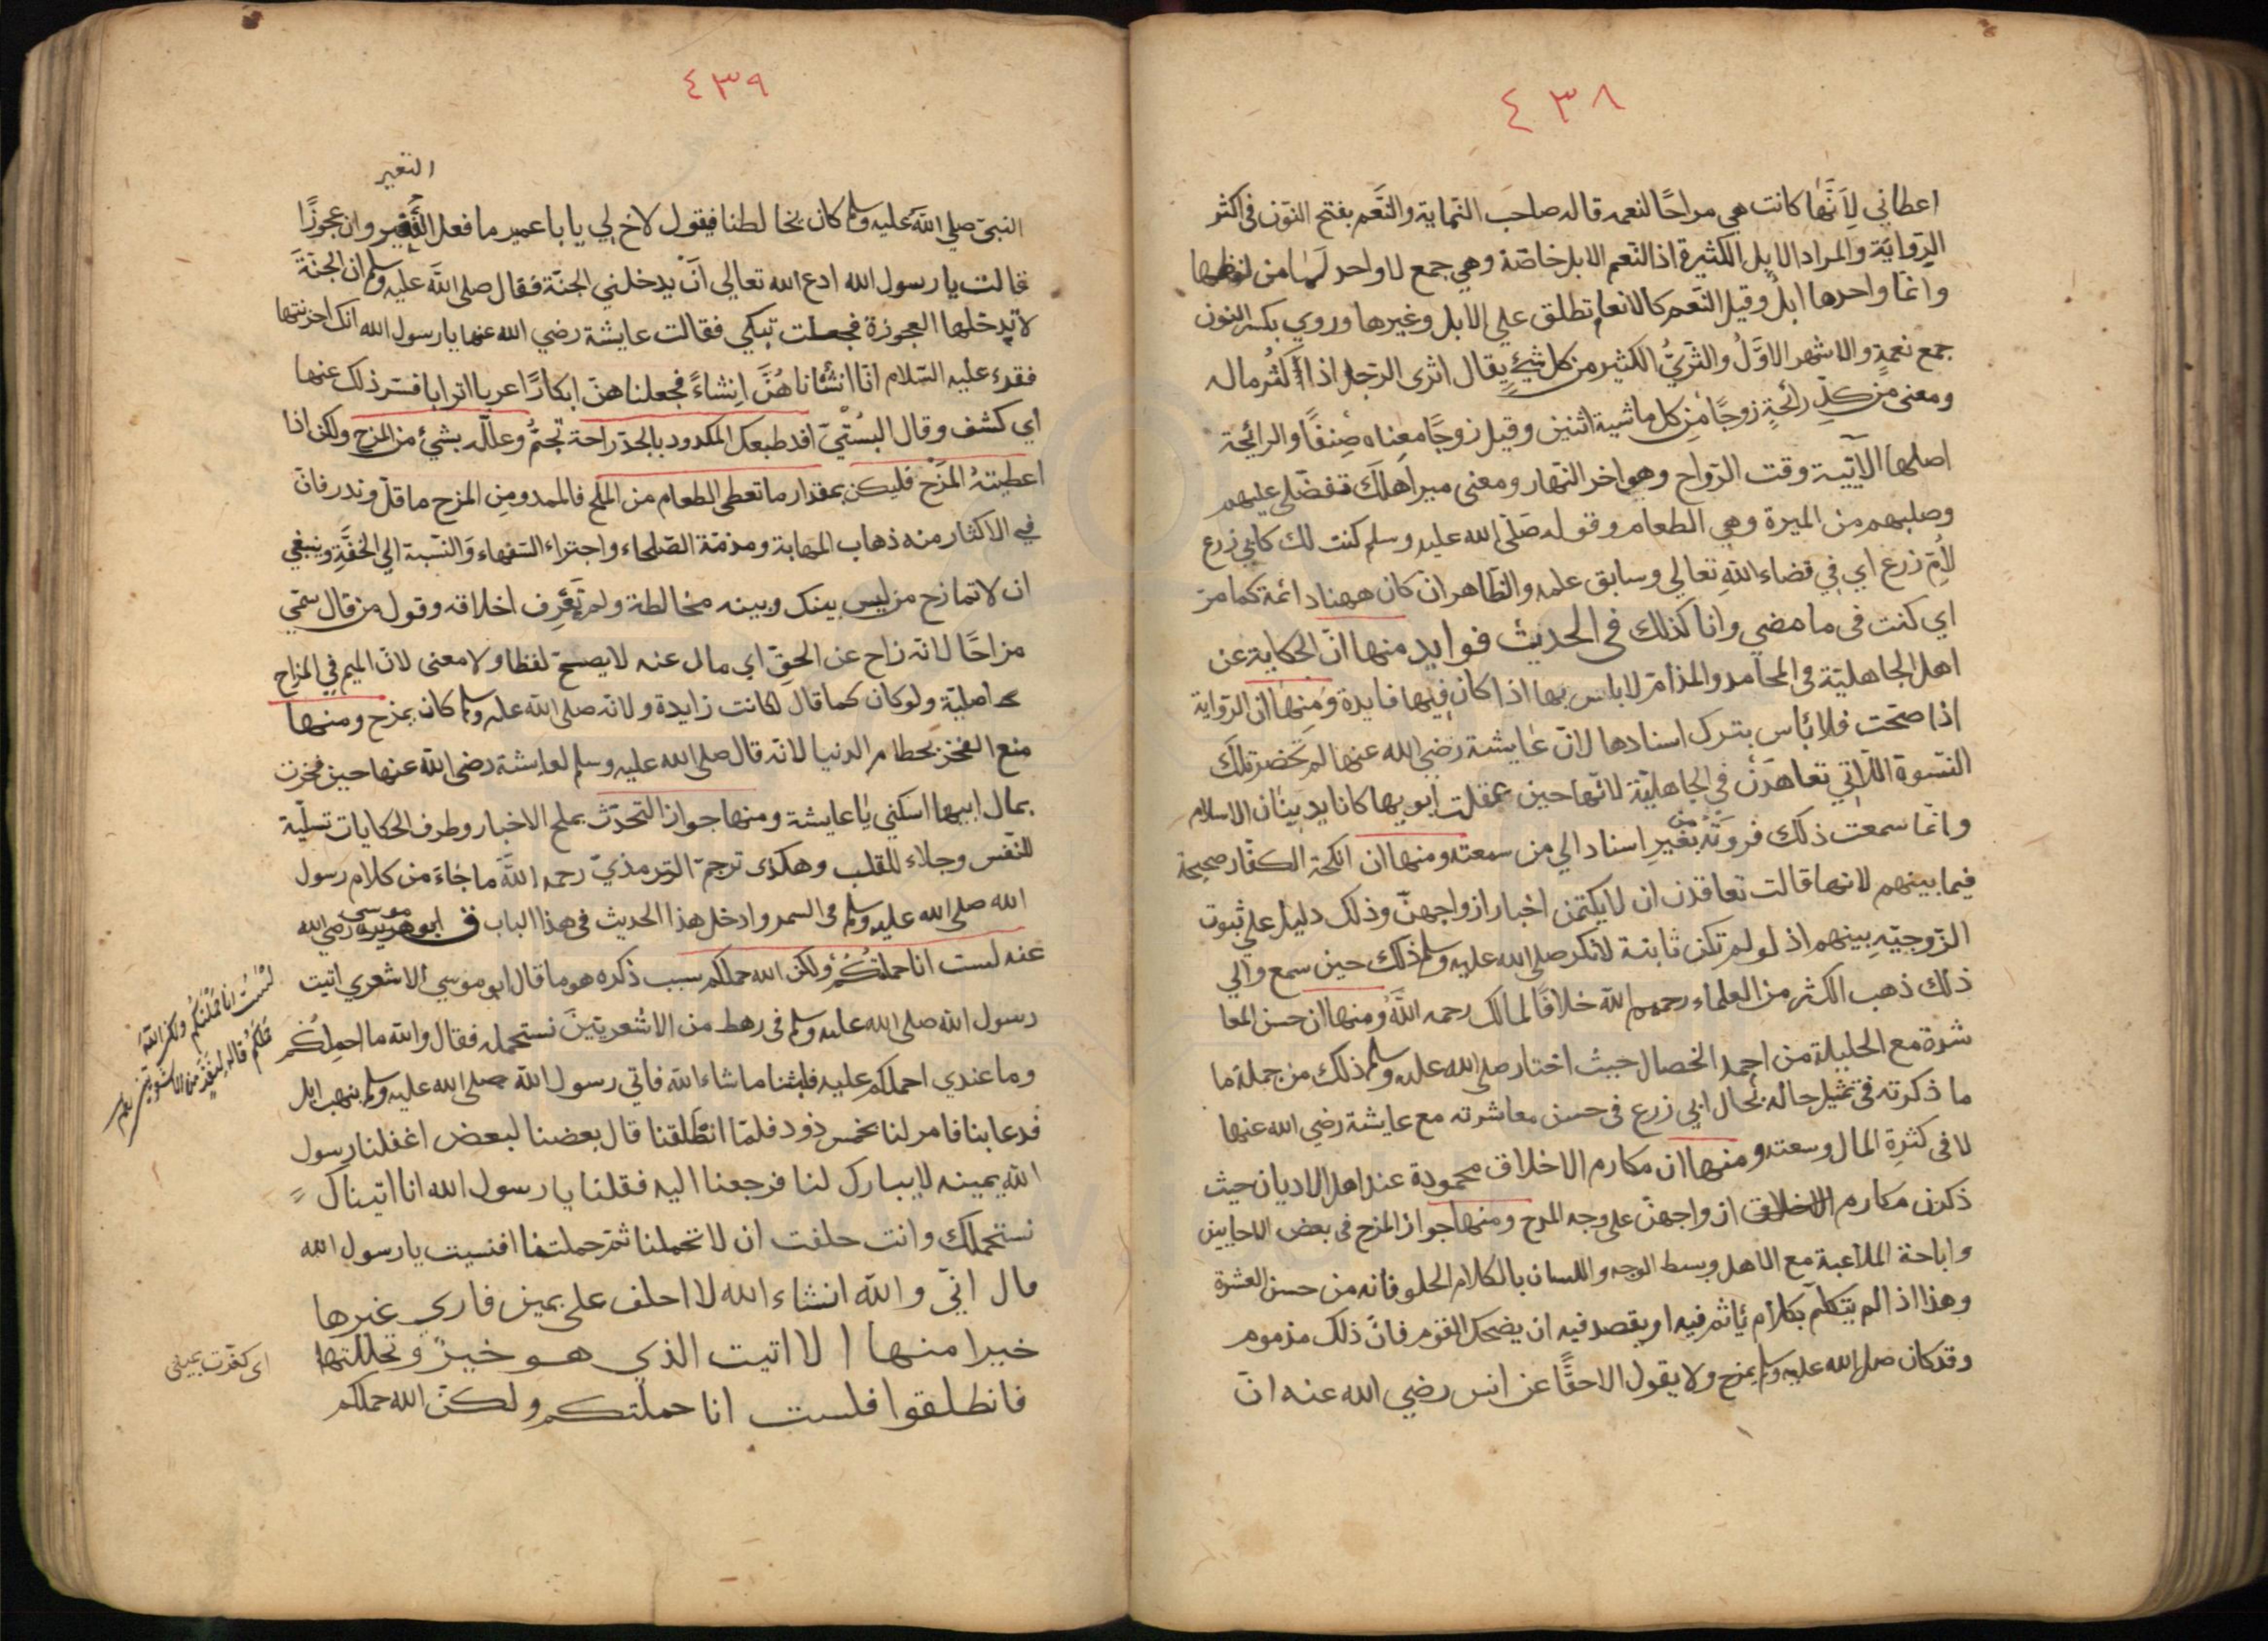 ٤٣٨
اعطاني لِاَنَّهٰا كانت هي مراحًا لنعمه قاله صاحب النهاية والنَّعَم بفتح النّون في اكثر
الرّواية والمراد الابل الكثيرة اذ النّعم الابل خاصّة وهي جمع لا واحد لها من لفظها
وانما واحدها ابلٌ وقيل النّعم كالانعام تطلق علي الابل وغيرها وروي بكسر النون
جمع نعمةٍ والاشهر الاوّلُ والثّريُّ الكثير من كل شيءٍ يقال اثرى الرّجل اذا كثُر ماله
ومعنى من كلّ رائحةٍ زوجًا من كل ماشية اثنين وقيل زوجًا معناه صِنفًا والرائحة
اصلها الآتية وقت الرّواح وهو اخر النّهار ومعنى ميرا هلك تفضّلي عليهم
وصلبهم من الميرة وهي الطعام وقوله صَلّى الله عليه وسلم كنت لك كابي زرع
لاُمّ زرع اي في قضاء اللهِ تعالي وسابق علمه والظّاهر انّ كان ههنا دائمة كما مرّ
اي كنت في ما مضي وانا كذلك في الحديث فوايد منها انّ الحكاية عن
اهل الجاهليّة في المحامد والمذامّ لا باس بها اذا كان فيها فايدة ومنها ان الرّواية
اذا صحّت فلا بٔاس بترك اسنادها لانّ عايشة رضي الله عنها لم تحضر تلك
النّسوة اللّاتي تعاهدن في الجاهليّة لانّها حين عقلت ابويها كانا يدينان الاسلام
وانما سمعت ذلك فروتْه من بغير اسناد الي من سمعته ومنها ان انكحة الكفّار صحيحة
فيما بينهم لانها قالت تعاقدن ان لا يكتمن اخبار ازواجهنّ وذلك دليل علي ثبوت
الزّوجيّة بينهم اذ لو لم تكن ثابتة لانكر صلى الله عليه وسلم ذلك حين سمع والي
ذلك ذهب الكثر من العلماء رحمهم الله خلافًا لمالك رحمه اللّهُ ومنها ان حسن المعا
شرة مع الحليلة من احمد الخصال حيث اختار صلى الله عليه وسلم ذلك من جملة ما
ما ذكرته في تمثيل حاله بحال ابي زرع في حسن معاشرته مع عايشة رضي الله عنها
لا في كثرة المال وسعته ومنها ان مكارم الاخلاق محمودة عند اهل الاديان حيث
ذكرن مكارم الاخلاق ازواجهنّ على وجه المدح ومنها جواز المزح في بعض الاحايين
واباحة الملاعبة مع الاهل وبسط الوجه واللسان بالكلام الحلو فانه من حسن العشرة
وهذا اذا لم يتكلّم بكلام ئاثم فيه او يقصد فيه ان يضحك القوم فانّ ذلك مذموم
وقد كان صلى الله عليه وسلم يمزح ولا يقول الا حقًّا عن انس رضي الله عنه انّ
٤٣٩
النغير
النبيّ صلي اللّه عليه وسلم كان يخالطنا فيقول لاخ لي يا با عمير ما فعل النُّغير وان عجوزًا
قالت يا رسول الله ادع الله تعالي انْ يدخلني الجنّة فقال صلى اللّه عليه وسلم ان الجنّة
لا تدخلها العجوزة فجعلت تبكي فقالت عايشة رضي الله عنها يا رسول الله انك احزنتها
فقرء عليه السّلام انّا انشٔانا هُنَّ اِنشاءً فجعلنا هنّ ابكارًا عربا اترابا فسّر ذلك عنها
اي كشف وقال البُستيّ افد طبعك المكدود بالجدّ راحة تجمُّ وعلّله بشئ من المزح ولكن اذا
اعطيتهُ المَزْح فليكن بمقدار ما تعطى الطعام من الملح فالممدوح من المزح ما قلّ وندر فانّ
في الاكثار منه ذهاب المهابة ومذمّة الصّلحاء واجتراء السّفهاء والنّسبة الي الخفّةِ وينبغي
ان لا تمازح من ليس بينك وبينه مخالطة ولم تَعرِف اخلاقه وقول من قال سمّي
مزاحًا لانّه زاح عن الحقّ اي مال عنه لا يصحّ لفظا ولا معنى لانّ الميم في المزاح
اصليّة ولو كان كما قال لكانت زايدة ولانّه صلى الله عليه وسلم كان يمزح ومنها
منع الفخر بحطام الدنيا لانّه قال صلى الله عليه وسلم لعايشة رضي اللّه عنها حين فخرت
بمال ابيها اسكتي يا عايشة ومنها جواز التحدّث بملح الاخبار وطرف الحكايات تسليّة
للنّفس وجلاء للقلب وهكذى ترجم الترمذيّ رحمه اللّهَ ما جاءَ من كلام رسول
الله صلى الله عليه وسلم في السمر وادخل هذا الحديث في هذا الباب ق ابو هريرة موسى رضي الله
عنه لست انا حملتُكُمْ ولكن الله حملكم سبب ذكره هو ما قال ابو موسي الاشعري اتيت
رسول اللّه صلى الله عليه وسلم في رهط من الاشعريّينَ نستحمله فقال والله ما احمِلُكُم
وما عندي احملكم عليه فلبثنا ما شاء اللّه فاتي رسول اللّه صلى الله عليه وسلم بنهب ابل
فدعا بنا فامر لنا بخمس ذود فلمّا انطلقنا قال بعضنا لبعض اغفلنا رسول
اللّه يمينه لا يبارك لنا فرجعنا اليه فقلنا يا رسول الله انا اتيناك
نستحملك وانت حلفت ان لا تحملنا ثمّ حملتنا افنسيت يا رسول الله
قال انّي واللّه انشاء الله لا احلف على يمين فاري غيرها
خيرا منها الا اتيت الذي هو خيرٌ وتحللتها
فانطلقوا فلست انا حملتكم ولكنّ الله حملكم
لسْتُ انا حَمَلْتُكُم ولكنّ اللّهَ
حَمَلَكُمْ قاله لنفرٍ من الاشعريّين
اى كفّرت يمينى